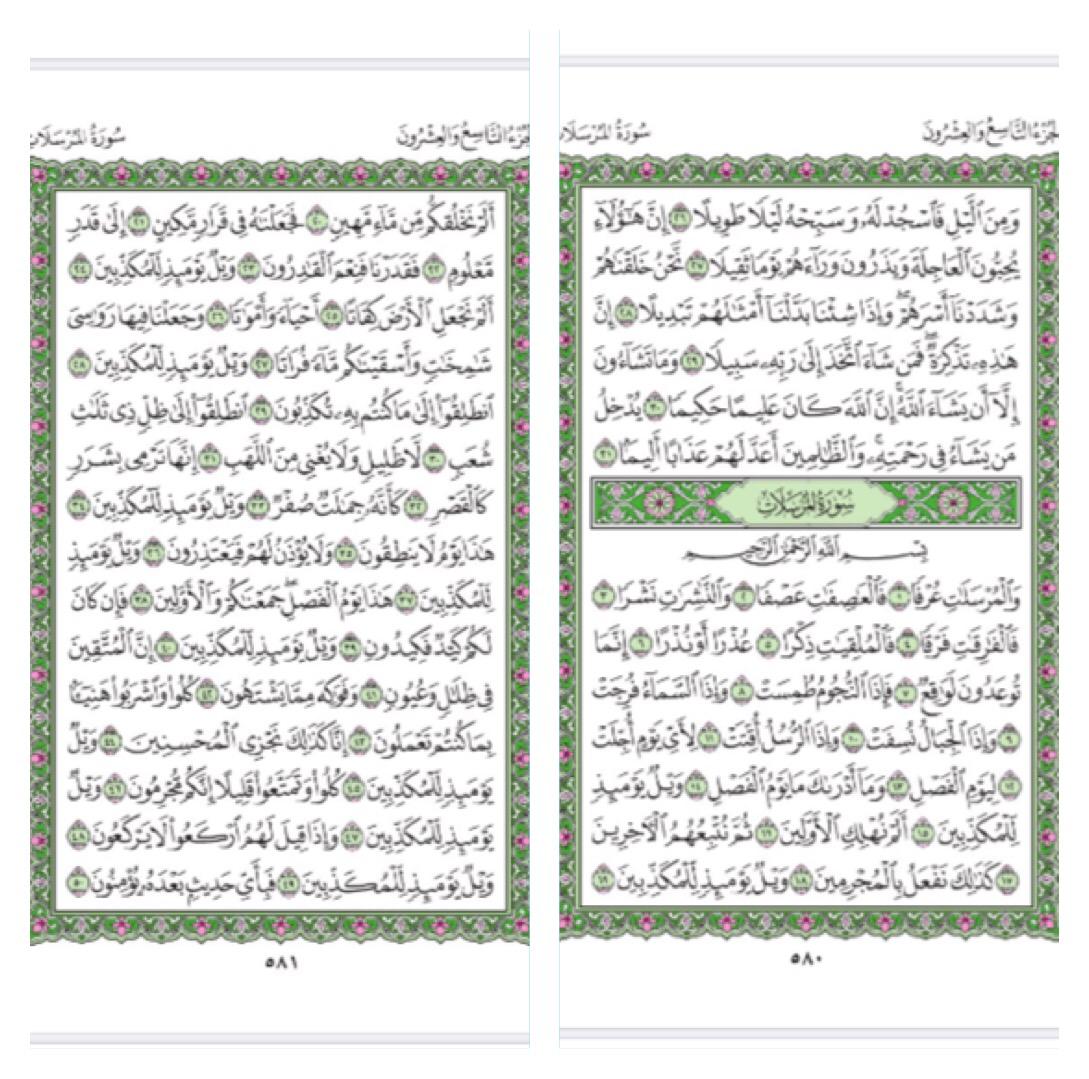 الجُزْءُ التَّاسِعُ وَالْعِشْرُونَ سُورَةُ المُرْسَلَات
وَمِنَ ٱلَّيۡلِ فَٱسۡجُدۡ لَهُۥ وَسَبِّحۡهُ لَيۡلٗا طَوِيلًا ٢٦ إِنَّ هَٰٓؤُلَآءِ
يُحِبُّونَ ٱلۡعَاجِلَةَ وَيَذَرُونَ وَرَآءَهُمۡ يَوۡمٗا ثَقِيلٗا ٢٧ نَّحۡنُ خَلَقۡنَٰهُمۡ
وَشَدَدۡنَآ أَسۡرَهُمۡۖ وَإِذَا شِئۡنَا بَدَّلۡنَآ أَمۡثَٰلَهُمۡ تَبۡدِيلًا ٢٨ إِنَّ
هَٰذِهِۦ تَذۡكِرَةٞۖ فَمَن شَآءَ ٱتَّخَذَ إِلَىٰ رَبِّهِۦ سَبِيلٗا ٢٩ وَمَا تَشَآءُونَ
إِلَّآ أَن يَشَآءَ ٱللَّهُۚ إِنَّ ٱللَّهَ كَانَ عَلِيمًا حَكِيمٗا ٣٠ يُدۡخِلُ
مَن يَشَآءُ فِي رَحۡمَتِهِۦۚ وَٱلظَّٰلِمِينَ أَعَدَّ لَهُمۡ عَذَابًا أَلِيمَۢا ٣١
سُورَةُ المُرْسَلَاتِ
بِسۡمِ ٱللَّهِ ٱلرَّحۡمَٰنِ ٱلرَّحِيمِ
وَٱلۡمُرۡسَلَٰتِ عُرۡفٗا ١ فَٱلۡعَٰصِفَٰتِ عَصۡفٗا ٢ وَٱلنَّٰشِرَٰتِ نَشۡرٗا ٣
فَٱلۡفَٰرِقَٰتِ فَرۡقٗا ٤ فَٱلۡمُلۡقِيَٰتِ ذِكۡرًا ٥ عُذۡرًا أَوۡ نُذۡرًا ٦ إِنَّمَا
تُوعَدُونَ لَوَٰقِعٞ ٧ فَإِذَا ٱلنُّجُومُ طُمِسَتۡ ٨ وَإِذَا ٱلسَّمَآءُ فُرِجَتۡ
٩ وَإِذَا ٱلۡجِبَالُ نُسِفَتۡ ١٠ وَإِذَا ٱلرُّسُلُ أُقِّتَتۡ ١١ لِأَيِّ يَوۡمٍ أُجِّلَتۡ
١٢ لِيَوۡمِ ٱلۡفَصۡلِ ١٣ وَمَآ أَدۡرَىٰكَ مَا يَوۡمُ ٱلۡفَصۡلِ ١٤ وَيۡلٞ يَوۡمَئِذٖ
لِّلۡمُكَذِّبِينَ ١٥ أَلَمۡ نُهۡلِكِ ٱلۡأَوَّلِينَ ١٦ ثُمَّ نُتۡبِعُهُمُ ٱلۡأٓخِرِينَ
١٧ كَذَٰلِكَ نَفۡعَلُ بِٱلۡمُجۡرِمِينَ ١٨ وَيۡلٞ يَوۡمَئِذٖ لِّلۡمُكَذِّبِينَ ١٩
٥٨٠
الجُزْءُ التَّاسِعُ وَالْعِشْرُونَ سُورَةُ المُرْسَلَات
أَلَمۡ نَخۡلُقكُّم مِّن مَّآءٖ مَّهِينٖ ٢٠ فَجَعَلۡنَٰهُ فِي قَرَارٖ مَّكِينٍ ٢١ إِلَىٰ قَدَرٖ
مَّعۡلُومٖ ٢٢ فَقَدَرۡنَا فَنِعۡمَ ٱلۡقَٰدِرُونَ ٢٣ وَيۡلٞ يَوۡمَئِذٖ لِّلۡمُكَذِّبِينَ ٢٤
أَلَمۡ نَجۡعَلِ ٱلۡأَرۡضَ كِفَاتًا ٢٥ أَحۡيَآءٗ وَأَمۡوَٰتٗا ٢٦ وَجَعَلۡنَا فِيهَا رَوَٰسِيَ
شَٰمِخَٰتٖ وَأَسۡقَيۡنَٰكُم مَّآءٗ فُرَاتٗا ٢٧ وَيۡلٞ يَوۡمَئِذٖ لِّلۡمُكَذِّبِينَ ٢٨
ٱنطَلِقُوٓاْ إِلَىٰ مَا كُنتُم بِهِۦ تُكَذِّبُونَ ٢٩ ٱنطَلِقُوٓاْ إِلَىٰ ظِلّٖ ذِي ثَلَٰثِ
شُعَبٖ ٣٠ لَّا ظَلِيلٖ وَلَا يُغۡنِي مِنَ ٱللَّهَبِ ٣١ إِنَّهَا تَرۡمِي بِشَرَرٖ
كَٱلۡقَصۡرِ ٣٢ كَأَنَّهُۥ جِمَٰلَتٞ صُفۡرٞ ٣٣ وَيۡلٞ يَوۡمَئِذٖ لِّلۡمُكَذِّبِينَ ٣٤
هَٰذَا يَوۡمُ لَا يَنطِقُونَ ٣٥ وَلَا يُؤۡذَنُ لَهُمۡ فَيَعۡتَذِرُونَ ٣٦ وَيۡلٞ يَوۡمَئِذٖ
لِّلۡمُكَذِّبِينَ ٣٧ هَٰذَا يَوۡمُ ٱلۡفَصۡلِۖ جَمَعۡنَٰكُمۡ وَٱلۡأَوَّلِينَ ٣٨ فَإِن كَانَ
لَكُمۡ كَيۡدٞ فَكِيدُونِ ٣٩ وَيۡلٞ يَوۡمَئِذٖ لِّلۡمُكَذِّبِينَ ٤٠ إِنَّ ٱلۡمُتَّقِينَ
فِي ظِلَٰلٖ وَعُيُونٖ ٤١ وَفَوَٰكِهَ مِمَّا يَشۡتَهُونَ ٤٢ كُلُواْ وَٱشۡرَبُواْ هَنِيٓـَٔۢا
بِمَا كُنتُمۡ تَعۡمَلُونَ ٤٣ إِنَّا كَذَٰلِكَ نَجۡزِي ٱلۡمُحۡسِنِينَ ٤٤ وَيۡلٞ
يَوۡمَئِذٖ لِّلۡمُكَذِّبِينَ ٤٥ كُلُواْ وَتَمَتَّعُواْ قَلِيلًا إِنَّكُم مُّجۡرِمُونَ ٤٦ وَيۡلٞ
يَوۡمَئِذٖ لِّلۡمُكَذِّبِينَ ٤٧ وَإِذَا قِيلَ لَهُمُ ٱرۡكَعُواْ لَا يَرۡكَعُونَ ٤٨
وَيۡلٞ يَوۡمَئِذٖ لِّلۡمُكَذِّبِينَ ٤٩ فَبِأَيِّ حَدِيثِۭ بَعۡدَهُۥ يُؤۡمِنُونَ ٥٠
٥٨١